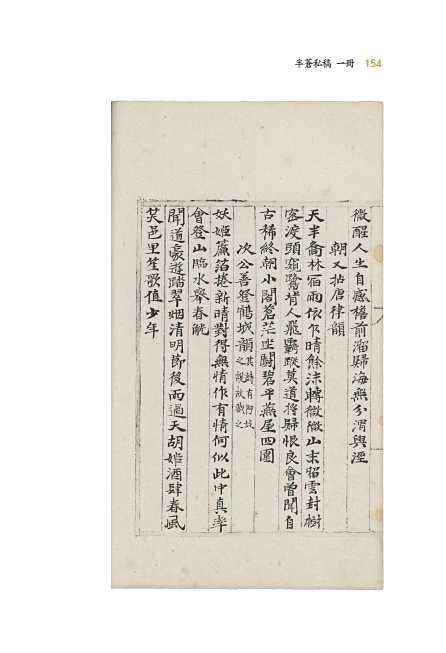 半蒼私稿 一冊 154
微醒人生自感檐前溜歸海無分渭與涇
朝又拈唐律韻
天半喬林宿雨依乍晴餘沫轉微微山末留雲封樹
密渡頭窺鷺背人飛霽蹤莫道將歸恨良會曾聞自
古稀終朝小閣蒼茫坐闘碧平蕪屋四圍
次公善登鶴城韻其詩有阿故
之謔故戲之
妖姬簾箔捲新晴對得無情作有情何似此中真率
會登山臨水擧春觥
聞道豪遊踏翠烟清明節後雨過天胡姬酒肆春風
笑邑里笙歌值少年